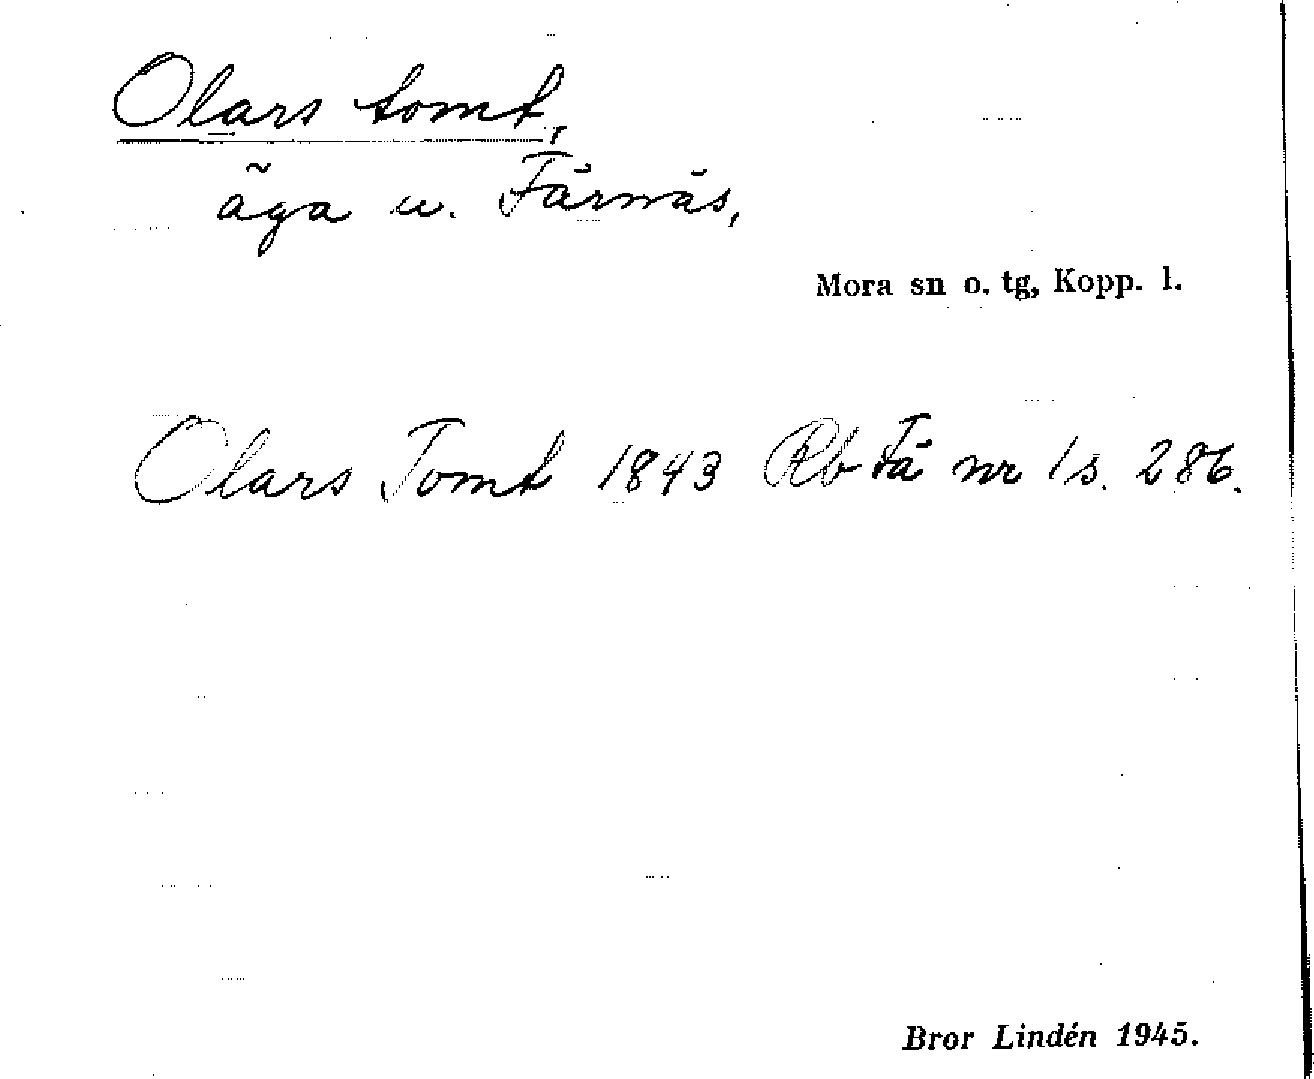 Olars tomt,
äga u. Färnäs,
Mora sn o. tg, Kopp. l.
Olars Tomt 1843 Rb Fä nr 1 s. 286.
Bror Lindén 1945.